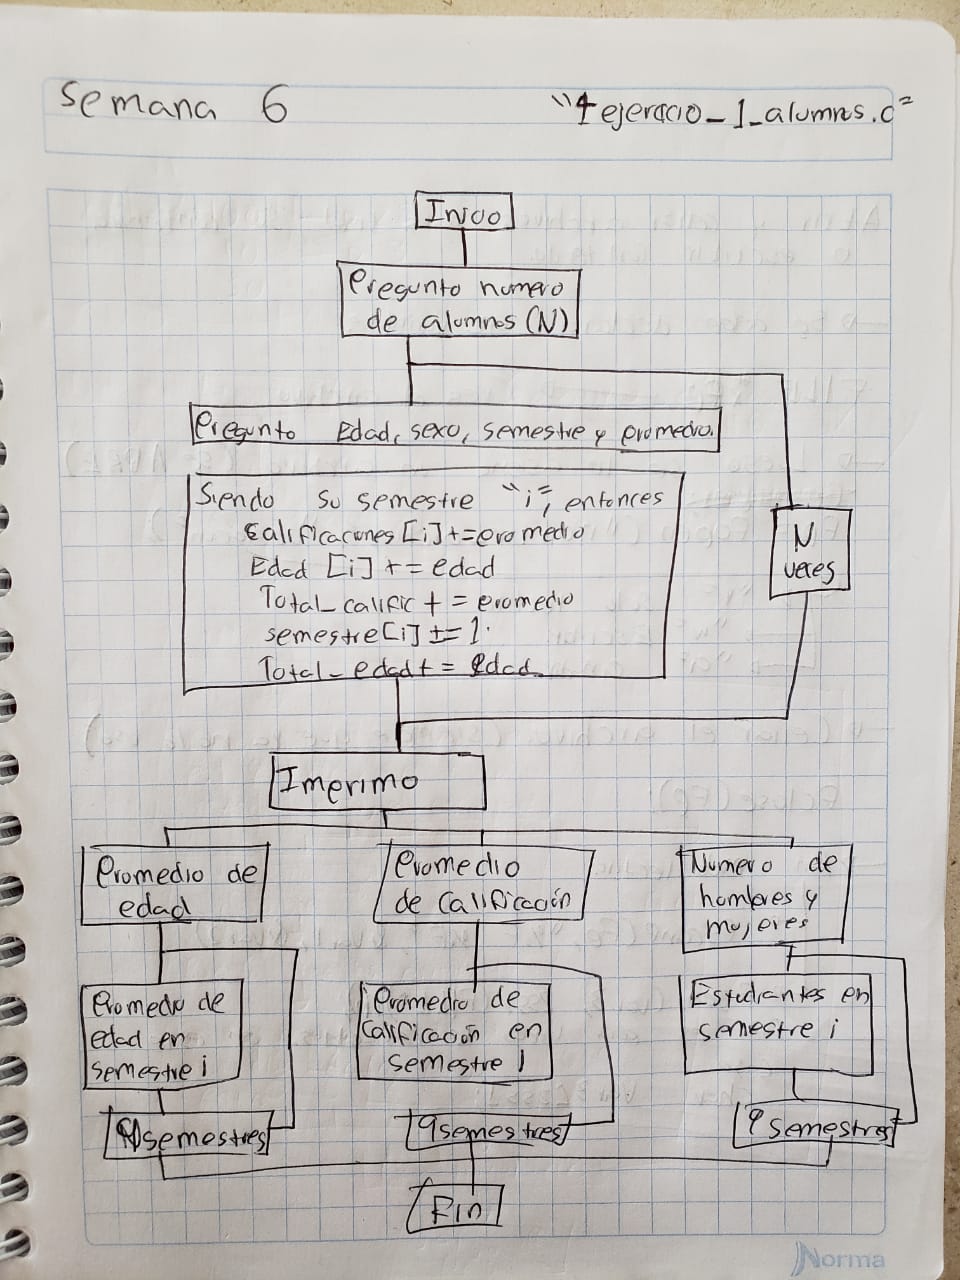 Semana 6
"4ejercicio_1_alumnos.c"
Inicio
Pregunto numero
de alumnos (N)
Pregunto Edad, sexo, semestre y promedio.
Siendo su semestre "i", entonces
Calificaciones [i] += promedio
Edad [i] += edad
Total_calific += promedio
semestre[i] += 1.
Total_edad += edad
N
veces
Imprimo
Promedio de
edad
Promedio
de Calificación
Numero de
hombres y
mujeres
Promedio de
edad en
semestre i
Promedio de
calificación en
semestre i
Estudiantes en
semestre i
semestres
9 semestres
9 semestres
Fin
Norma